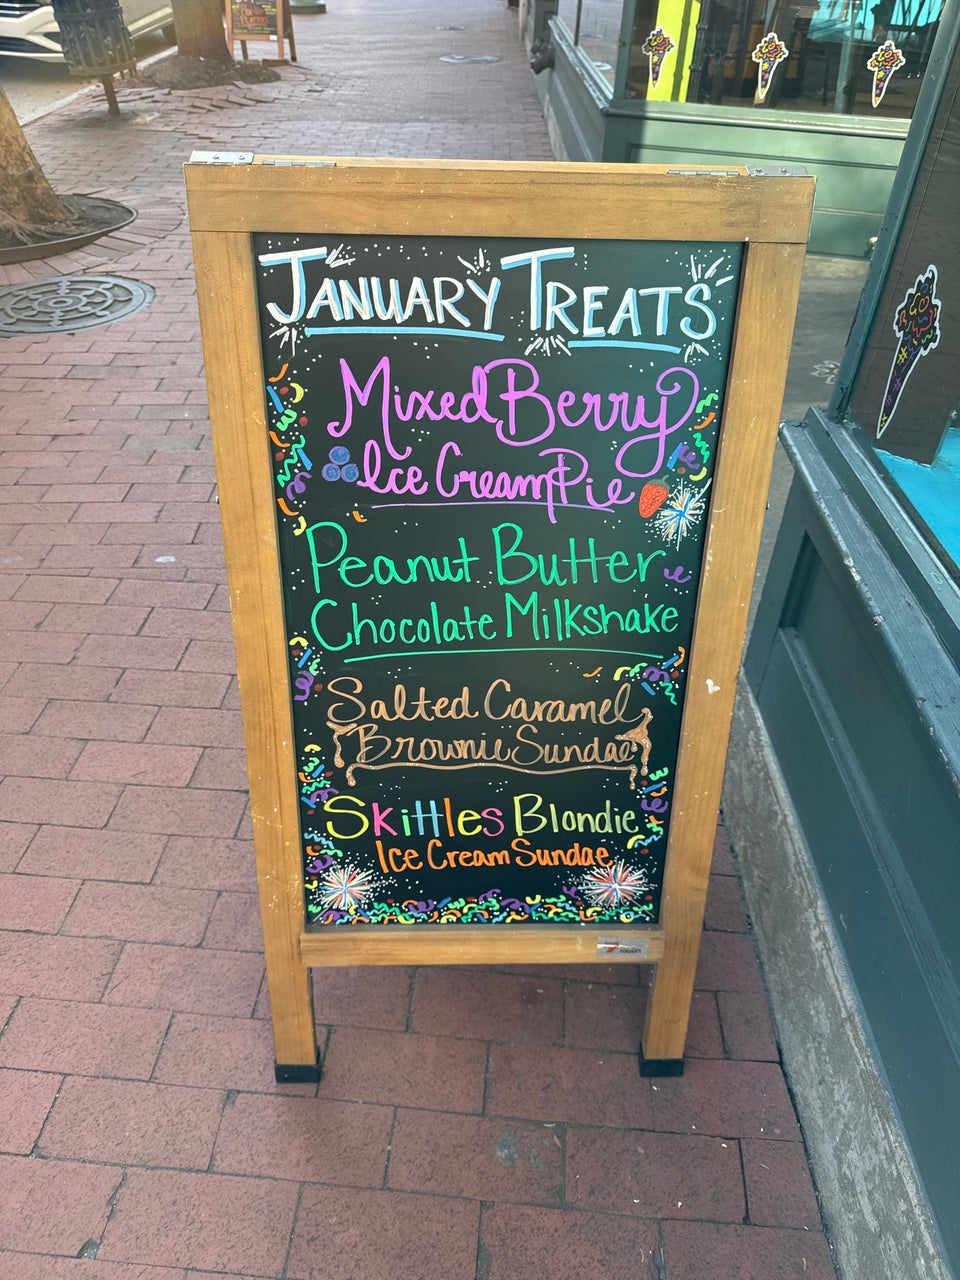 January Treats
Mixed Berry
Ice Cream Pie
Peanut Butter
Chocolate Milkshake
Salted Caramel
Brownie Sundae
Skittles Blondie
Ice Cream Sundae